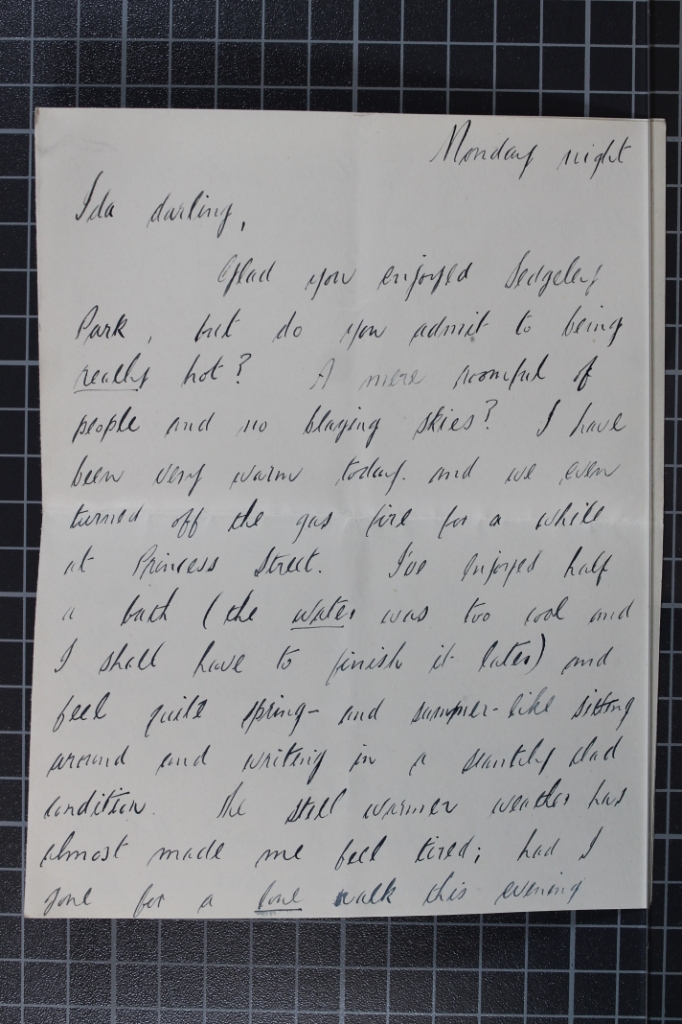 Monday night
Ida darling,
Glad you enjoyed Sedgeley
Park, but do you admit to being
really hot? A mere roomful of
people and no blazing skies? I have
been very warm today and we even
turned off the gas fire for a while
at Princess Street. I've enjoyed half
a bath (the water was too cool and
I shall have to finish it later) and
feel quite spring- and summer-like sitting
around and writing in a scantily clad
condition. The still warmer weather has
almost made me feel tired; had I
gone for a long walk this evening